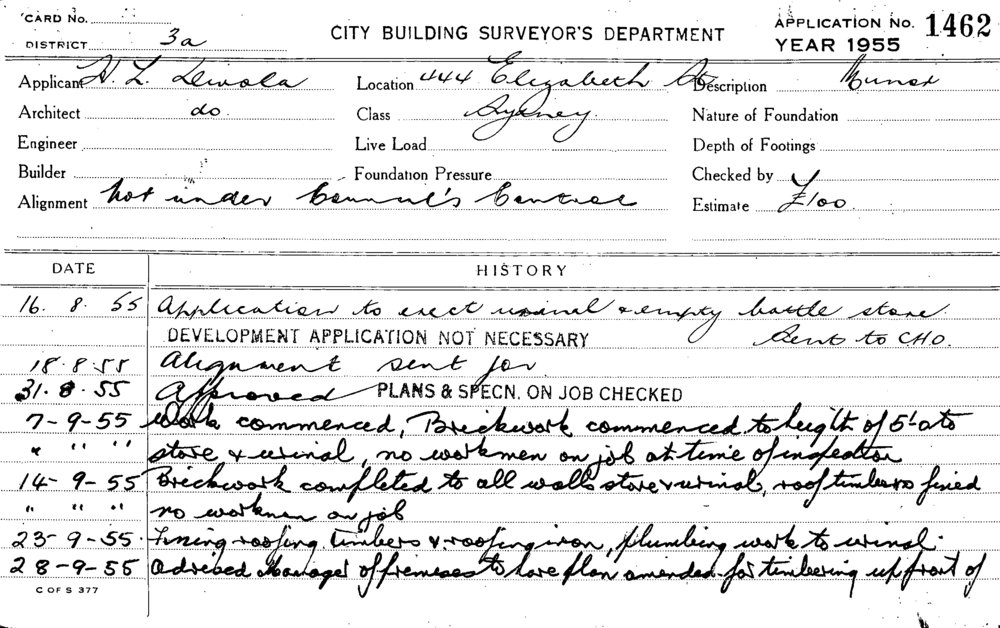 CARD NO.
DISTRICT 3a
CITY BUILDING SURVEYOR'S DEPARTMENT
APPLICATION NO. 1462
YEAR 1955
Applicant H. L. Location 444 Elizabeth St Description Minor
Architect do. Class Sydney Nature of Foundation
Engineer Live Load Depth of Footings
Builder Foundation Pressure Checked by
Alignment Not under Council's Control Estimate £100
DATE HISTORY
16. 8. 55 Application to erect urinal & empty bottle store.
DEVELOPMENT APPLICATION NOT NECESSARY Sent to CHO.
18.8.55 Alignment sent for
31.8.55 Approved PLANS & SPECN. ON JOB CHECKED
7-9-55 Work commenced, Brickwork commenced to height of 5' to
" " " store & urinal, no workmen on job at time of inspection
14-9-55 Brickwork completed to all walls store & urinal, roof timbers fixed
" " " no workmen on job
23-9-55 Fixing roofing timbers & roofing iron, plumbing work to urinal.
28-9-55 Advised Manager of premises to have plan amended for timbering up front of
C OF S 377